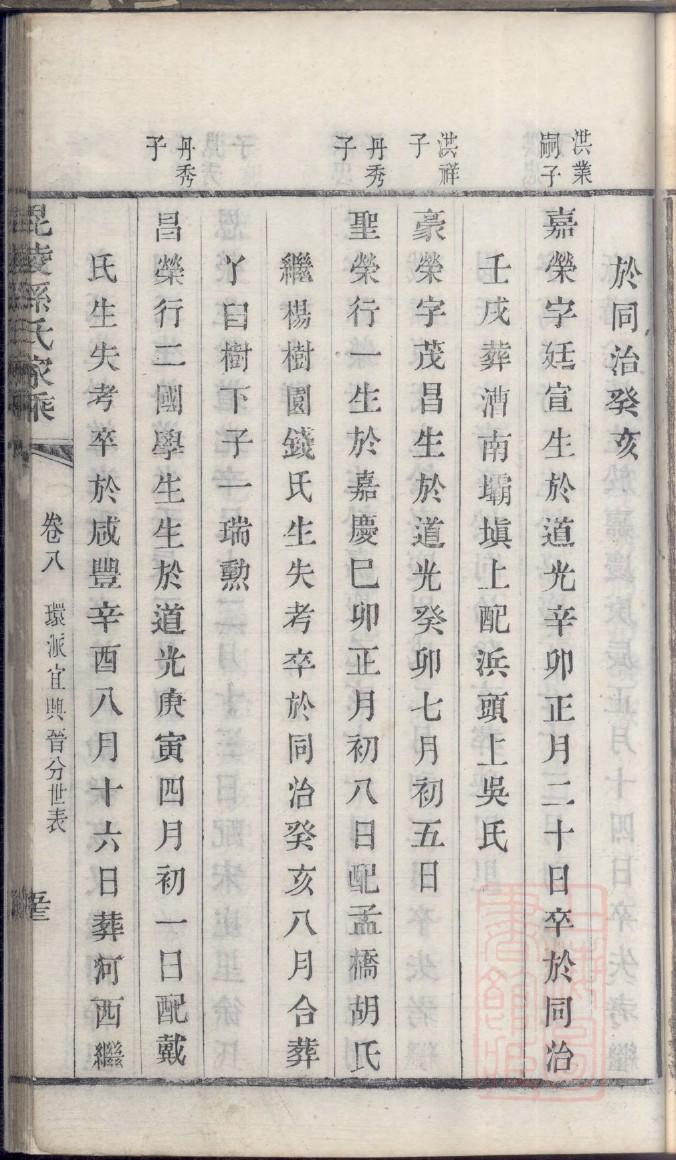 於同治癸亥
洪業
嗣子
嘉榮字廷宣生於道光辛卯正月二十日卒於同治
壬戌葬漕南壩塡上配浜頭上吳氏
洪祥
子
豪榮字茂昌生於道光癸卯七月初五日
丹秀
子
聖榮行一生於嘉慶巳卯正月初八日配孟橋胡氏
繼楊樹園錢氏生失考卒於同治癸亥八月合葬
丫曰樹下子一瑞勲
丹秀
子
昌榮行二國學生生於道光庚寅四月初一日配戴
氏生失考卒於咸豐辛酉八月十六日葬河西繼
毘陵孫氏家乘
卷八
環派宜興晉分世表